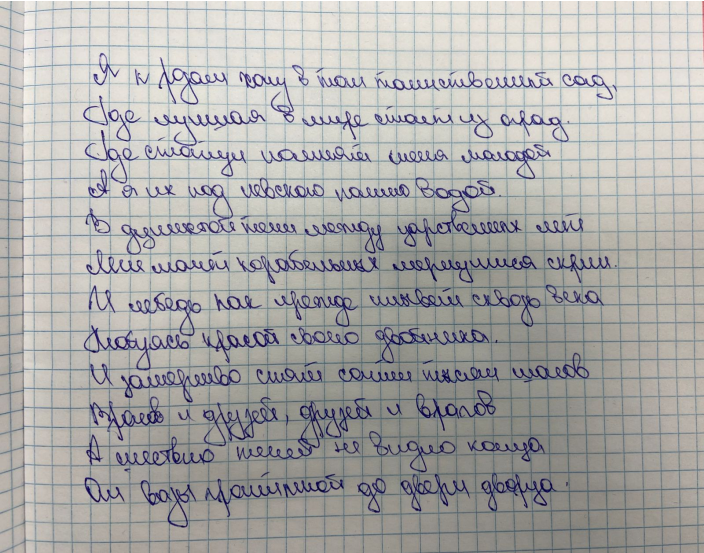 Я к розам хочу в тот таинственный сад,
Где лучшая в мире стоит из оград.
Где статуи помнят меня молодой
А я их под невскою помню водой.
В душистой тени между царственных лип
Мне мачт корабельных мерещится скрип.
И лебедь как прежде плывёт сквозь века
Любуясь красой своего двойника.
И замертво спят сотни тысяч шагов
Врагов и друзей, друзей и врагов
А шествию теней не видно конца
От вазы гранитной до двери дворца.